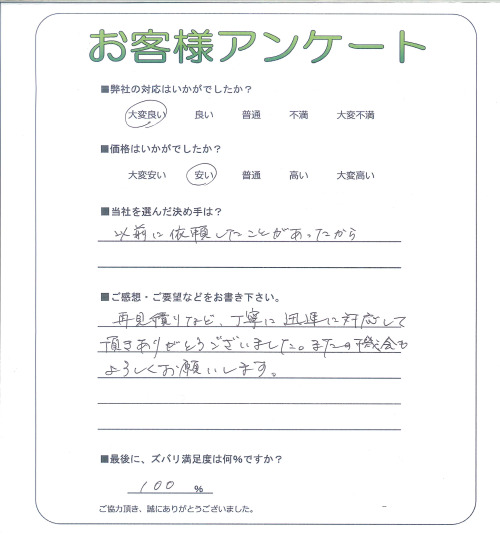 お客様アンケート
■弊社の対応はいかがでしたか？
大変良い 良い 普通 不満 大変不満
■価格はいかがでしたか？
大変安い 安い 普通 高い 大変高い
■当社を選んだ決め手は？
以前に依頼したことがあったから
■ご感想・ご要望などをお書き下さい。
再見積りなど、丁寧に迅速に対応して
頂きありがとうございました。またの機会も
よろしくお願いします。
■最後に、ズバリ満足度は何%ですか？
100 %
ご協力頂き、誠にありがとうございました。